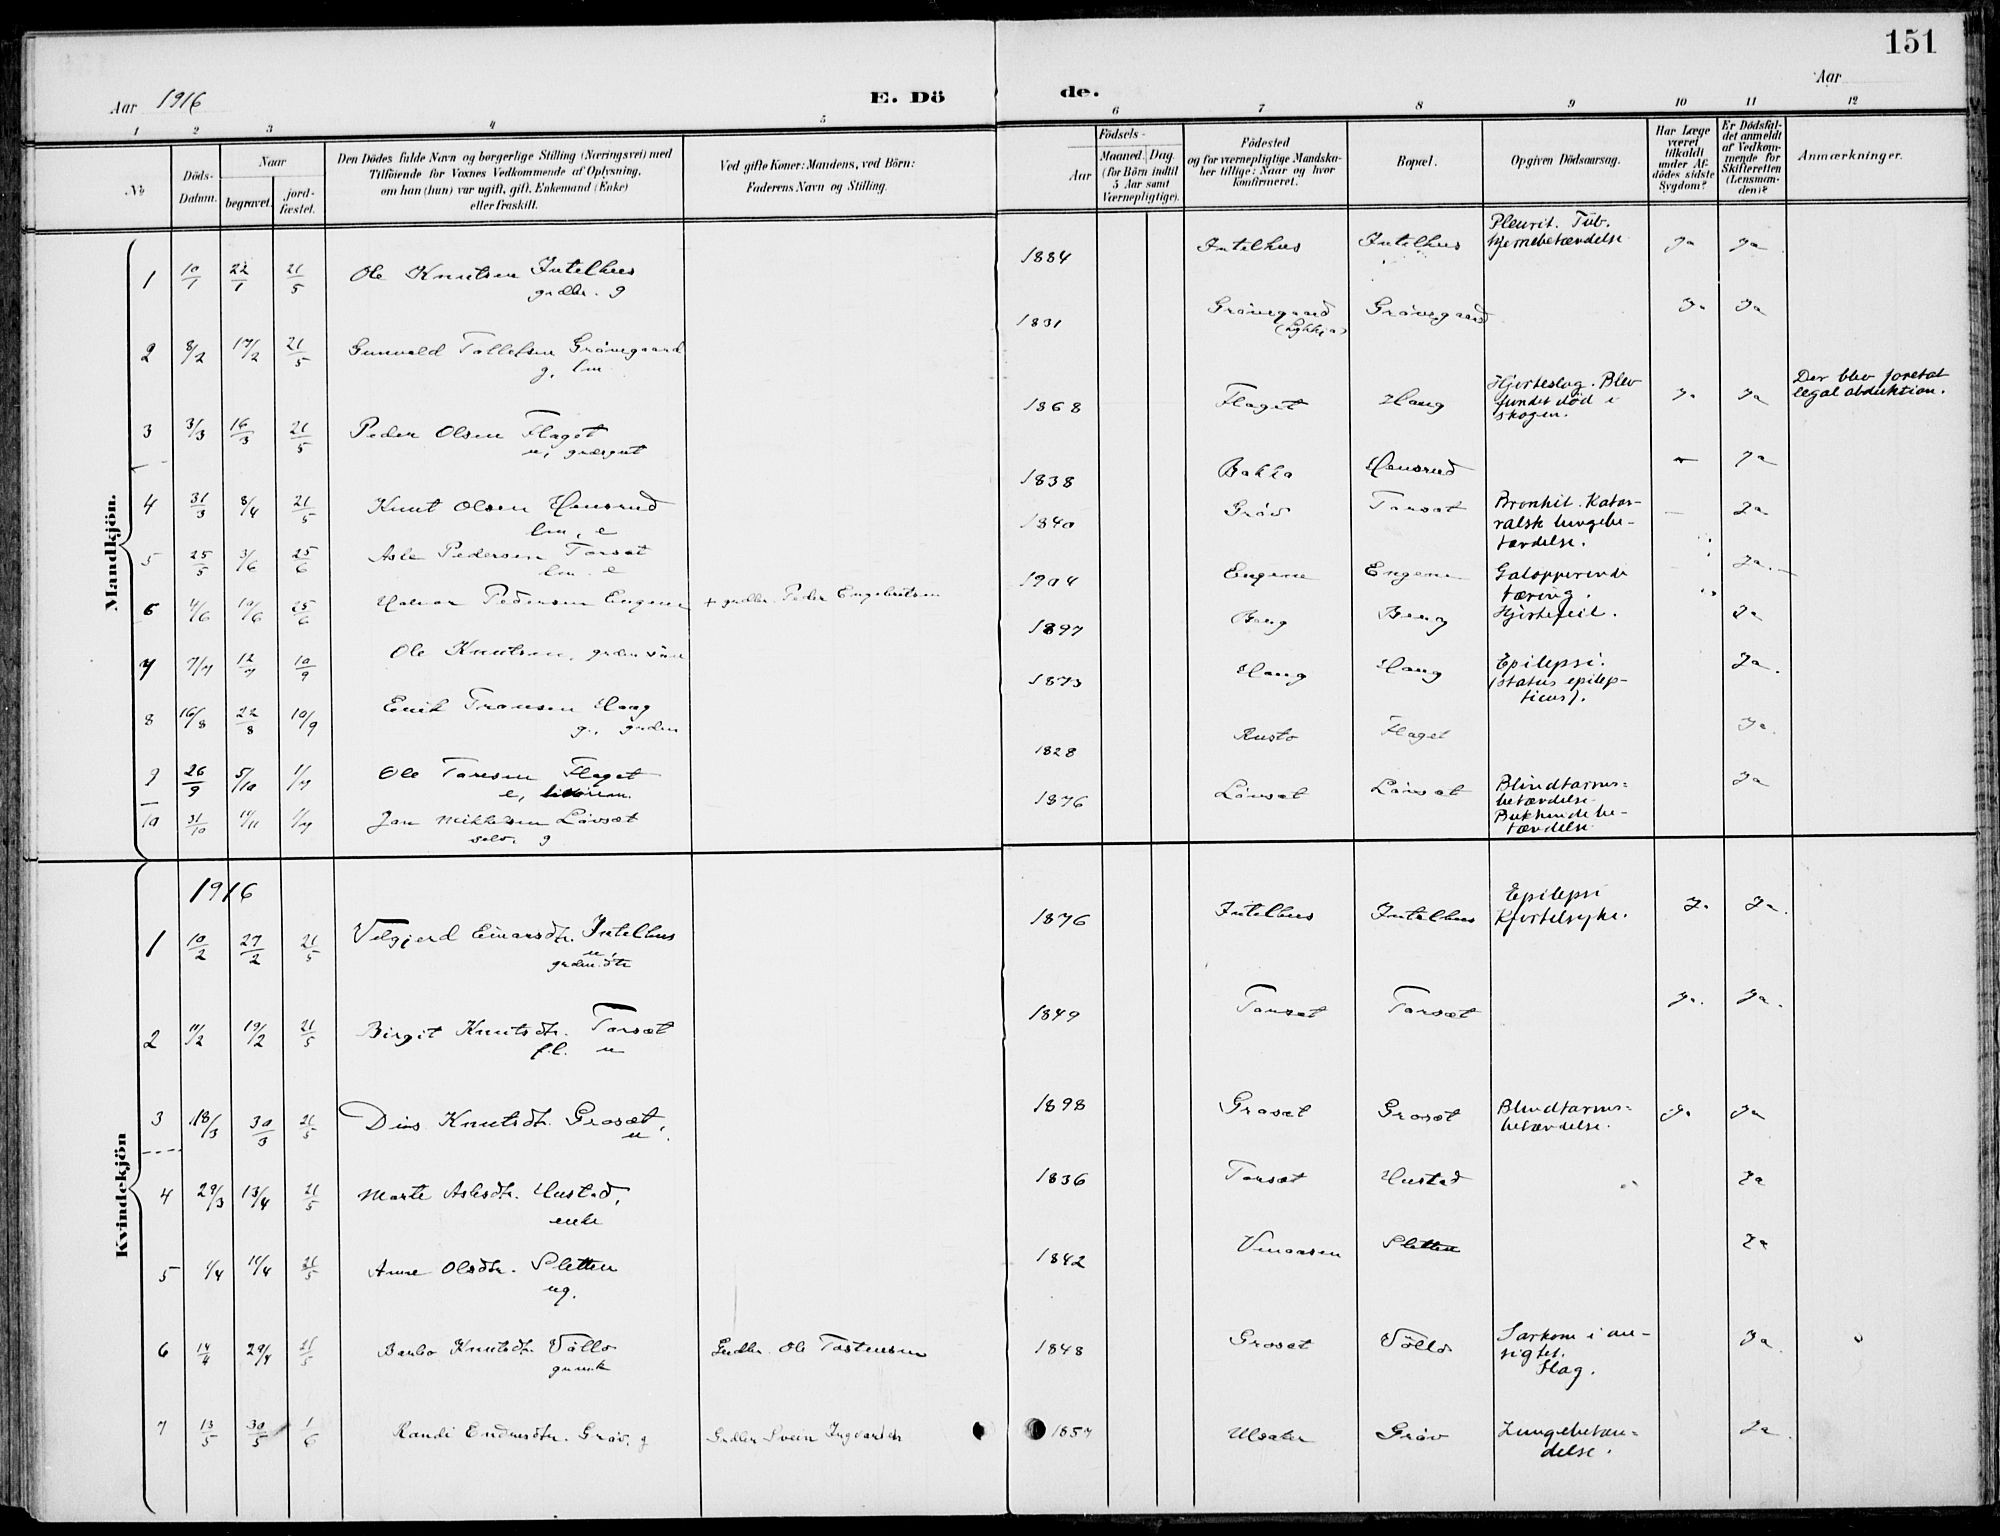 151
Aar 1916
E. Dö de.
Aar
1 2 3 4 5 6 7 8 9 10 11 12
No
Döds-Datum.
Naar
begravet.
jord-fæstet.
Den Dödes fulde Navn og borgerlige Stilling (Næringsvei) med
Tilföiende for Voxnes Vedkommende af Oplysning,
om han (hun) var ugift, gift, Enkemand (Enke)
eller fraskilt.
Ved gifte Koner: Mandens, ved Börn:
Faderens Navn og Stilling.
Födsels-
Aar
Maaned. Dag.
(for Börn indtil
5 Aar samt
Værnepligtige).
Födested
og for værnepligtige Mandska-
ber tillige: Naar og hvor
konfirmeret.
Bopæl.
Opgiven Dödsaarsag.
Har Læge
været
tilkaldt
under Af-
dödes sidste
Sygdom?
Er Dödsfal-
det anmeldt
af Vedkom-
mende for
Skifteretten
(Lensman-
den)?
Anmærkninger.
Mandkjön.
1 10/1 22/1 21/5 Ole Knutsen Intelhus 1884 Intelhus Intelhus Pleurit. Tub. Hjernebetændelse Ja Ja
grdbr. g
2 8/2 17/2 21/5 Gunvald Tollefsen Grönegaard 1831 Grönegaard Grönegaard Ja Ja
g. lm
3 3/3 16/3 21/5 Peder Olsen Flaget 1868 Flaget Haug Hjerteslag. Blev
fundet död i
skogen. Ja Ja Der blev foretat
legal obduktion.
u,
4 31/3 8/4 21/5 Knut Olsen Hensrud 1838 Bakka Hensrud Ja
lm, e
5 25/5 3/6 25/6 Asle Pedersen Torsæt 1840 Gröv Torsæt Bronkit. Katar-
ralsk lungebe-
tændelse. — Ja
lm. e
6 4/6 10/6 25/6 Halvor Pedersen Engene + grdbr. Peder Engebretsen 1904 Engene Engene Galopperende
tæring. Ja
7 7/7 12/7 10/9 Ole Knutsen, 1897 Berg Berg Hjertefeil. Ja
8 16/8 22/8 10/9 Erik Trondsen Haug 1873 Haug Haug Epilepsi.
(status epilep-
ticus). Ja.
g.,
9 26/9 5/10 1/7 Ole Toresen Flaget 1828 Rusto Flaget Ja.
e,
10 31/10 11/11 1/7 Jon Mikkelsen Lövset 1876 Lövset Lövset Blindtarms-
betændelse.
Bukhindebe-
tændelse Ja
selv. g
Kvindekjön
1916
1 10/2 27/2 21/5 Vilgjerd Einarsdtr. Intelhus 1876 Intelhus Intelhus Epilepsi
Kjertelsyke. Ja Ja.
u,
grdm.dtr
2 11/2 19/2 21/5 Birgit Knutsdtr. Torsæt 1849 Torsæt Torsæt Ja. Ja.
fl. u
3 18/3 30/3 21/5 Knutsdtr. Grosæt, 1898 Grosæt Grosæt Blindtarms-
betændelse. Ja Ja
u
4 29/3 13/4 21/5 Marte Aslesdtr. Hustad, 1836 Torsæt Hustad Ja
enke
5 1/4 11/4 21/5 Anne Olsdtr. Sletten 1842 Sletten Ja
ug.
6 14/4 29/4 21/5 Barbo Knutsdtr. Völlo Grdbr. Ole Tostensen 1848 Grosæt Völlo Sarkom i an-
sigtet.
Slag. Ja.
7 13/5 30/5 1/6 Randi Endresdtr. Gröv, g Grdbr. Svein Ingvarsen 1857 Ulsaker Gröv Lungebetæn-
delse. Ja.